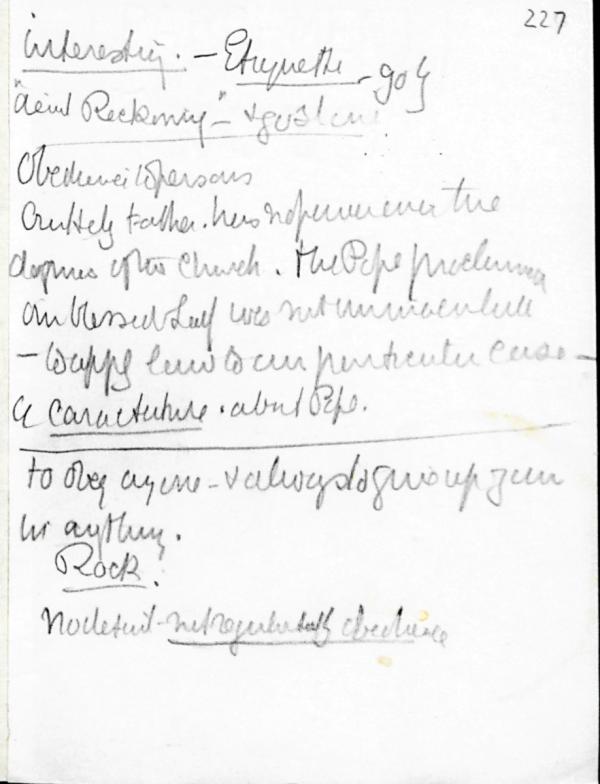 227
interesting. – Etiquette – go
"dead Reckoning" –
Obedience to persons
Our Holy Father. has no power over the
dogmas of the Church. the Pope proclaiming
our blessed Lady was not immaculate
– to apply law to our particular case –
a caracature. about Pope.
to obey anyone – & always to give up
in anything.
Rock.
No detail – not regulated by obedience